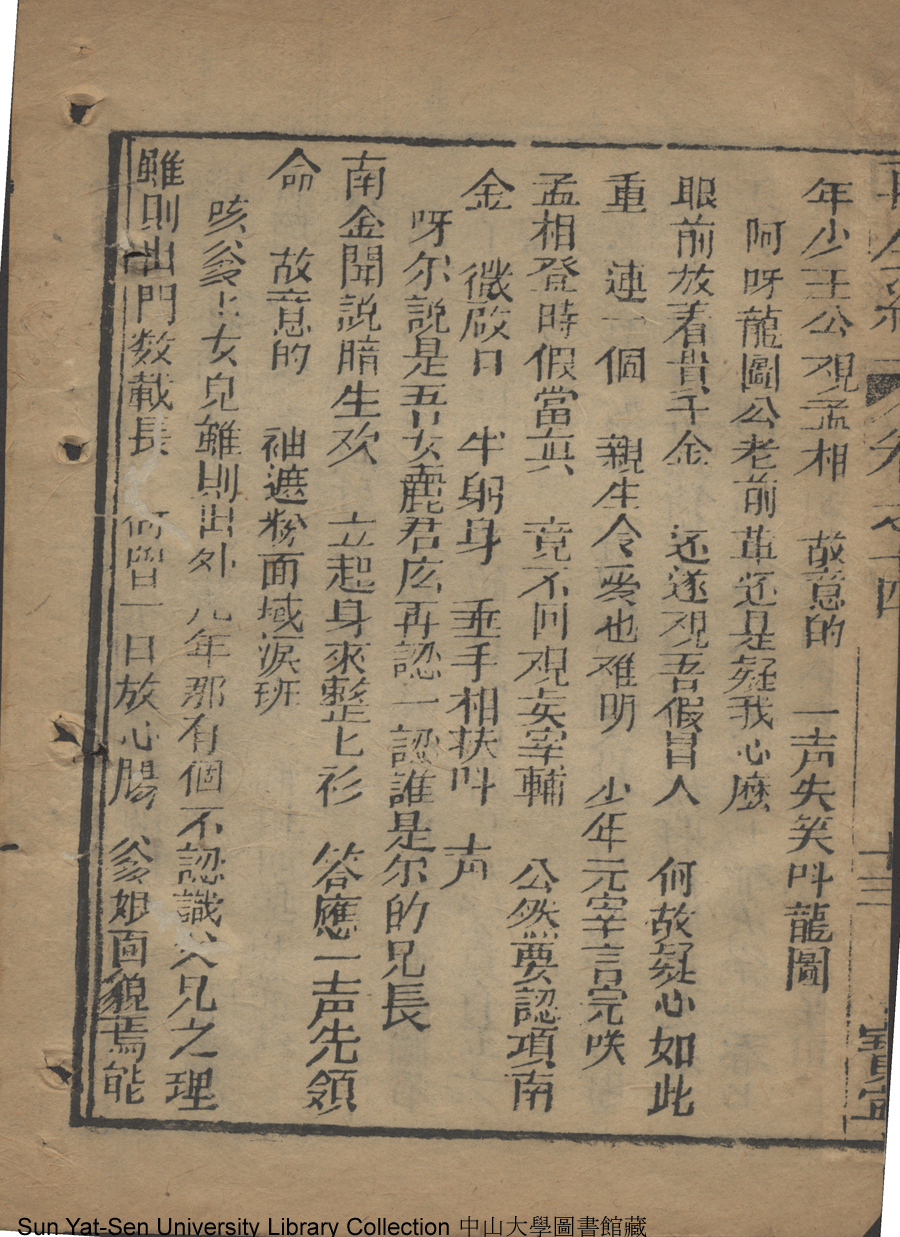 卷之十四
十三
年少王公观孟相 故意的 一声失笑呌龍圖
阿呀龍圖公老前軰还是疑我心麽
眼前放着貴千金 还遂观吾假冒人 何故疑心如此
重 連一個 親生令爱也难明 少年元宰言完咲
孟相登時假當真 竟不回观妄宰輔 公然要認項南
金 微啟日 半躬身 垂手相扶呌 声
呀尔説是吾女麗君庅再認一認誰是尔的兄長
南金聞説暗生欢 立起身來整上衫 答應一声先領
命 故意的 袖遮粉面域淚班
咳爹上女兒雖則出外 年那有個不認識父兄之理
雖則出門数載長 何曽一日放心腸 爹娘面貌焉能
Sun Yat-Sen University Library Collection 中山大學圖書館藏